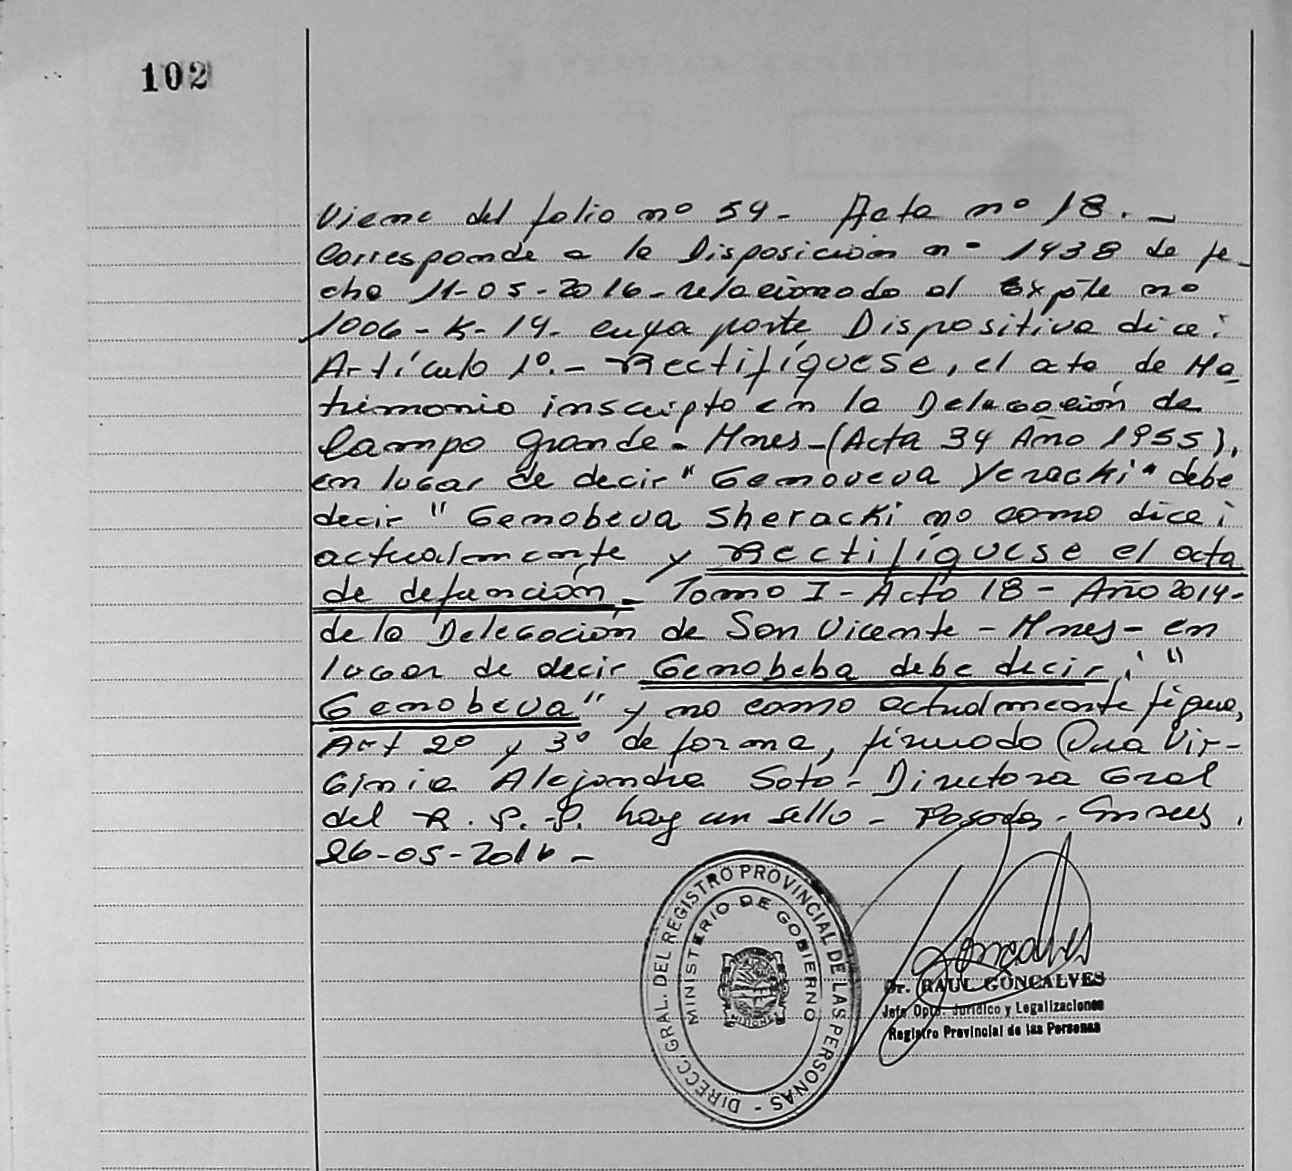 102
Viene del folio nº 54 - Acta nº 18. -
Corresponde a la Disposición nº 1438 de fe-
cha 11-05-2016 - relacionado al Expte nº
1006 - K - 14. cuya parte Dispositiva dice:
Artículo 1º. - Rectifíquese, el acta, de Ma-
trimonio inscripto en la Delegación de
Campo Grande - Mnes - (Acta 34 Año 1955),
en lugar de decir "Genoveva Yeracki" debe
decir "Genobeva Sheracki no como dice
actualmente y Rectifíquese el acta
de defunción - Tomo I - Acta 18 - Año 2014 -
de la Delegación de San Vicente - Mnes - en
lugar de decir Genobeba debe decir: "
Genobeva" y no como actualmente figura,
Art 2º y 3º de forma, firmado Dra Vir-
ginia Alejandra Soto - Directora Gral
del R. P. P. hay un sello - Posadas - Mnes.
26-05-2016 -
DIRECC. GRAL. DEL REGISTRO PROVINCIAL DE LAS PERSONAS -
MINISTERIO DE GOBIERNO
MISIONES
Dr. RAUL GONCALVES
Jefe Dpto. Jurídico y Legalizaciones
Registro Provincial de las Personas